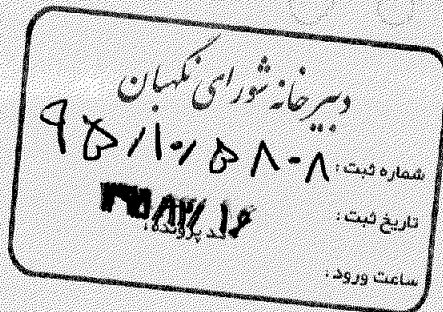 دبیرخانه شورای نگهبان
شماره ثبت: ۹۵/۱۰/۵۸۰۸
تاریخ ثبت:
کد پرونده:
ساعت ورود: